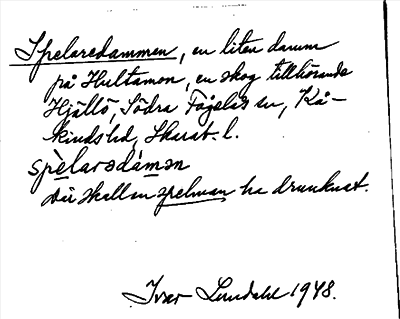 Spelaredammen, en liten damm
på Hultamon, en skog tillhörande
Hjällö, Södra Fågelås sn, Kå-
kinds hd, Skarab. l.
spèlarədámən
Där skall en spelman ha drunknat.
Ivar Lundahl 1948.